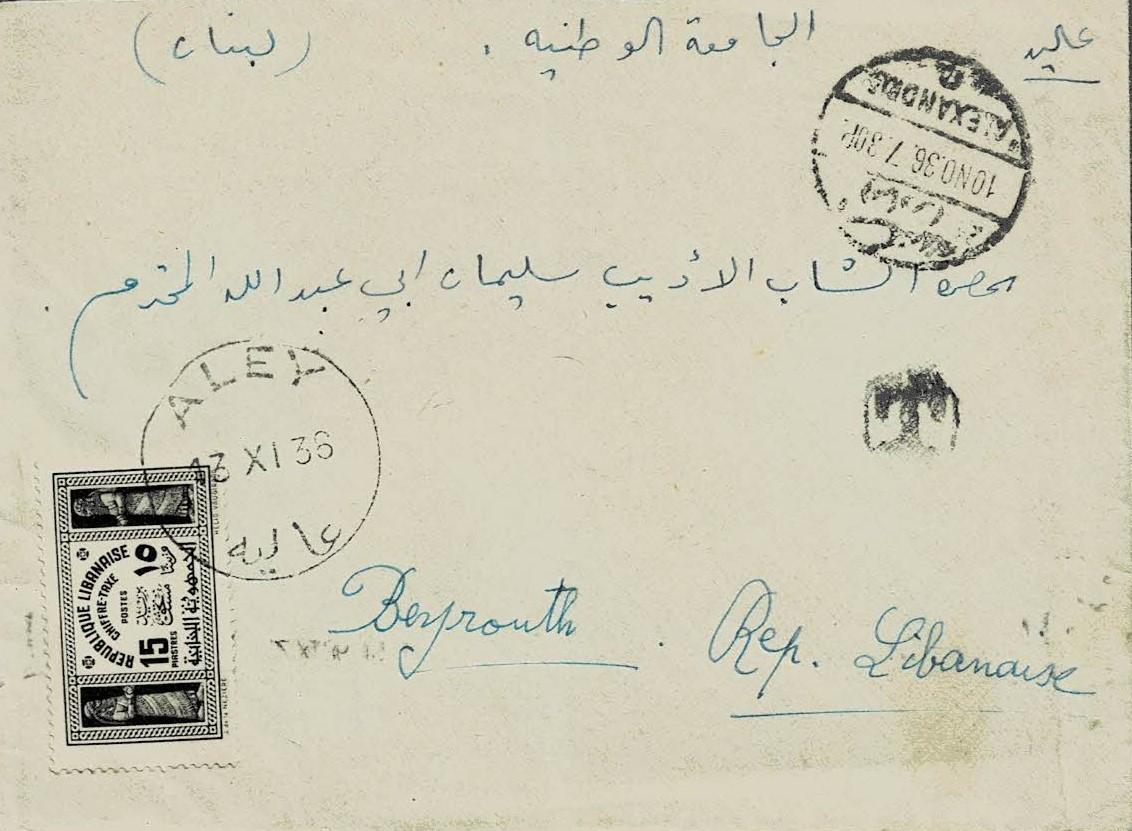 عاليه الجامعة الوطنيه . (لبنان)
ALEXANDRIA
10 NO.36. 7.30P.
حضرة الشاب الأديب سليمان ابي عبد الله المحترم
T
ALEY
13 XI 36
عاليه
REPUBLIQUE LIBANAISE
CHIFFRE-TAXE
POSTES
15
PIASTRES
١٥
الجمهورية اللبنانية
Beyrouth . Rep. Libanaise